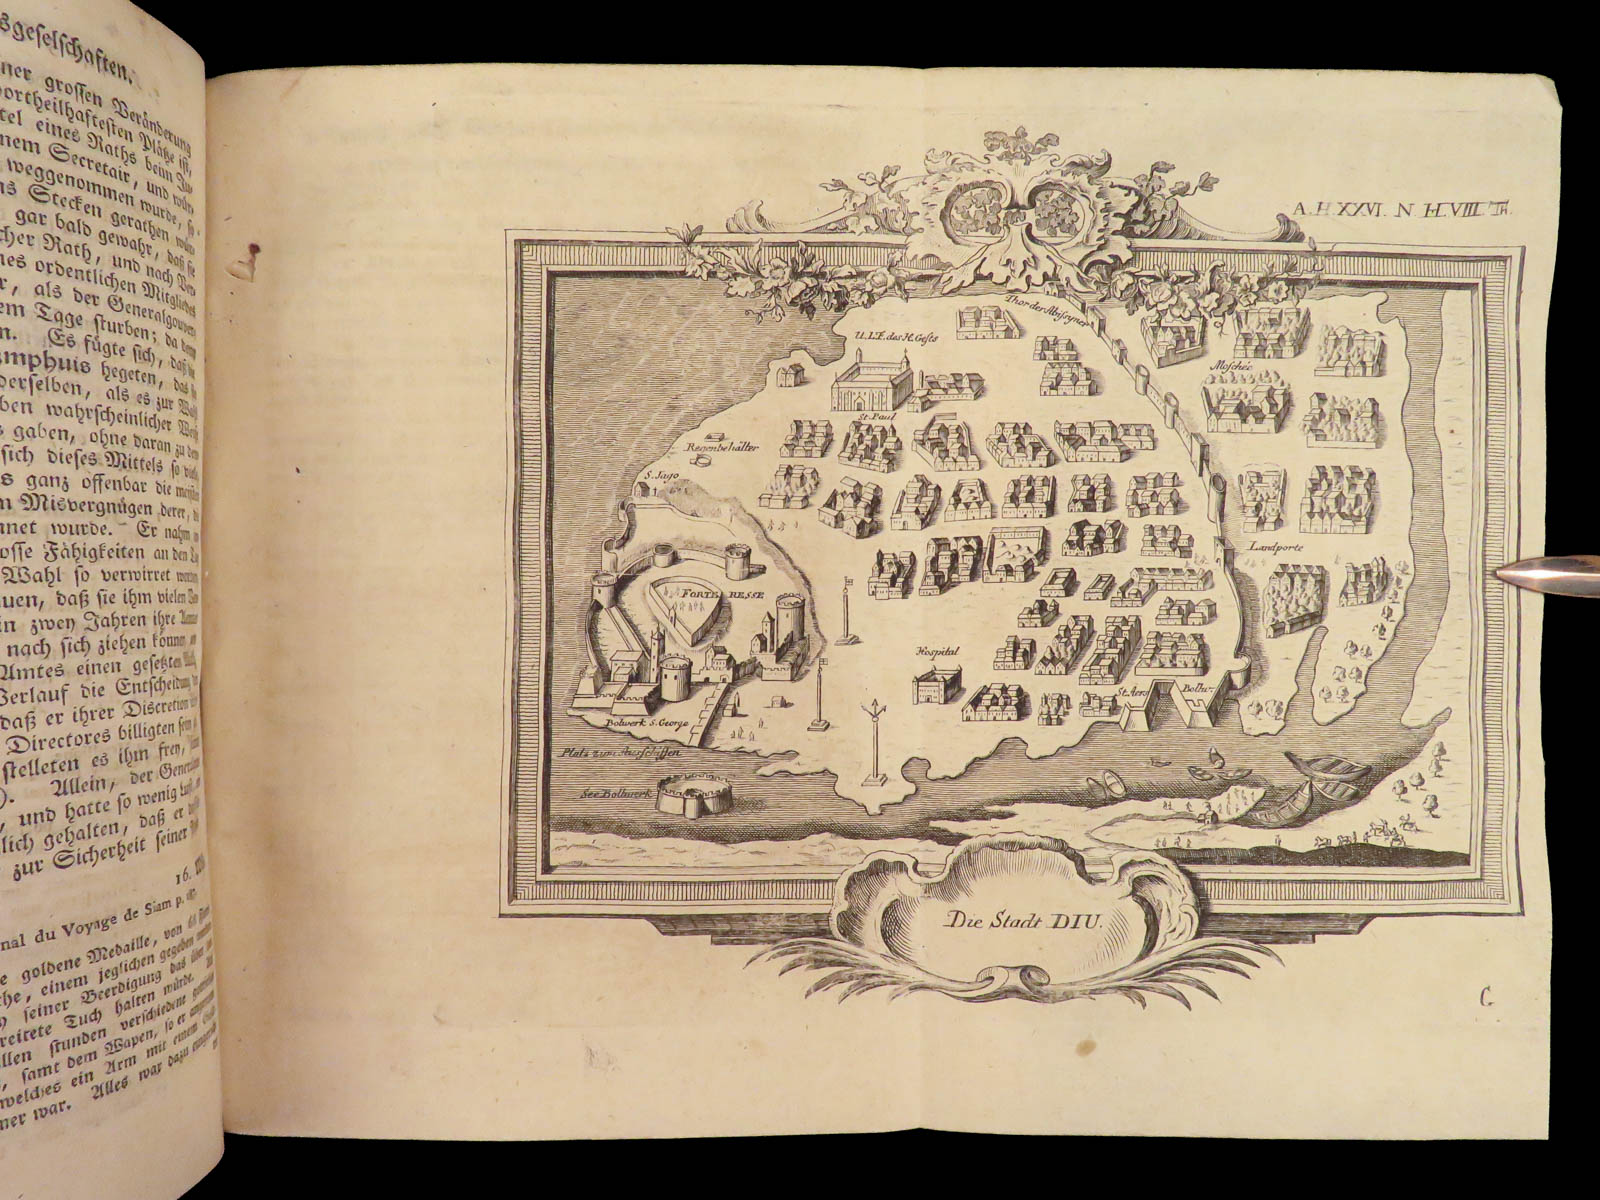 sgeselschaften.
ner grossen Veränderung
vortheilhaftesten Plätze ist,
tel eines Raths beym
nem Secretair, und
weggenommen wurde, so
Stecken gerathen
gar bald gewahr, daß sie
cher Rath, und nach
nes ordentlichen Mitgliedes
r, als der Generalgouvern
em Tage sturben; da
n. Es fügte sich, daß
mphuis hegeten, das
derselben, als es zur
ben wahrscheinlicher Weise
gaben, ohne daran zu
sich dieses Mittels so
s ganz offenbar die meisten
n Misvergnügen derer,
nnet wurde. Er nahm
osse Fähigkeiten an den
Wahl so verwirret
uen, daß sie ihm vielen
in zwey Jahren ihre
nach sich ziehen können
Amtes einen gesetzten
Verlauf die Entscheidung
daß er ihrer Discretion
Directores billigten
stelleten es ihm frey,
). Allein, der General
, und hatte so wenig Lust,
lich gehalten, daß er
zur Sicherheit seiner
16.
nal du Voyage de Siam p.
e goldene Medaille, von
che, einem jeglichen gegeben
seiner Beerdigung das
reitete Tuch halten würde.
llen stunden verschiedene
, samt dem Wapen, so er
welches ein Arm mit einem
ner war. Alles war dazu
A. H XXVI. N. H VIII Th.
Thor der Abissyner
U.L.F. des H. Geists
Moschee
St. Paul
Regenbehälter
S. Jago
Landporte
FORTERESSE
Hospital
Bollw.
Bolwerk S. George
Platz zum Ausschiffen
See Bollwerk
Die Stadt DIU.
G